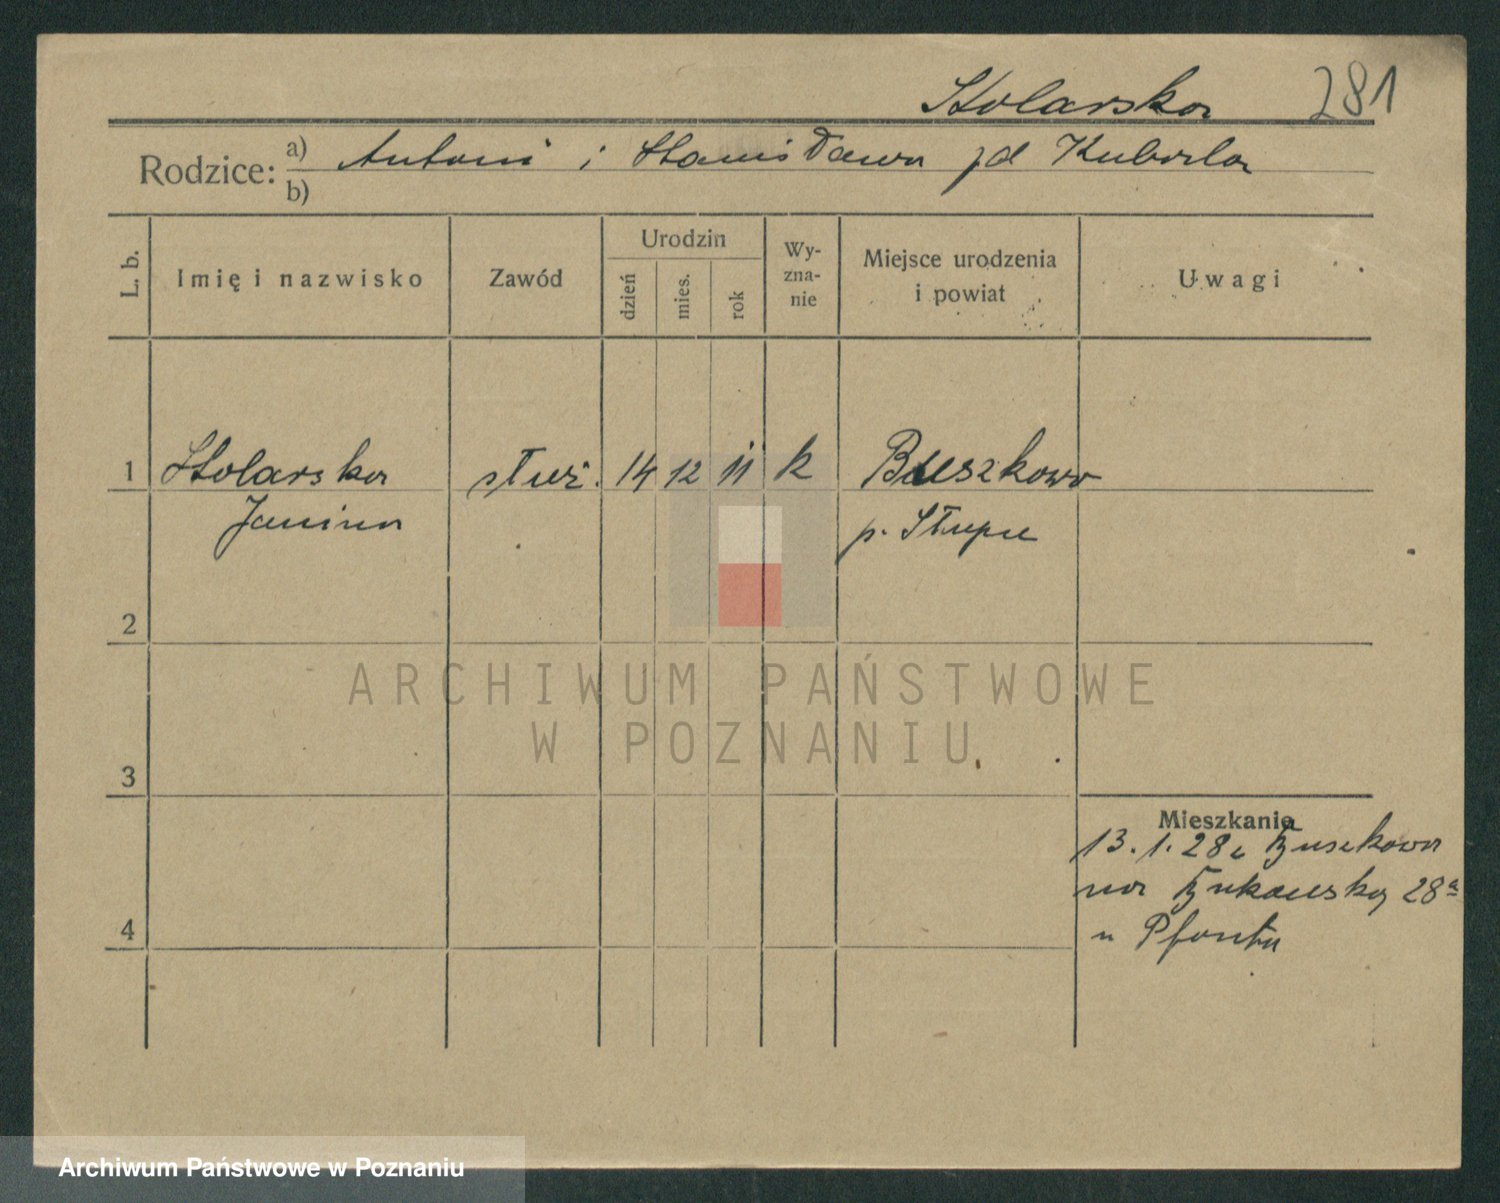 Stolarska 281
Rodzice: a) Antoni i Stanisława zd Kubala
b)
L. b.
Imię i nazwisko
Zawód
Urodzin
dzień
mies.
rok
Wy-
zna-
nie
Miejsce urodzenia
i powiat
Uwagi
1 Stolarska służ. 14 12 11 k Buszkowo
Janina p. Słupca
2
ARCHIWUM PAŃSTWOWE
W POZNANIU
3
Mieszkanie
13.1.28 z Buszkowa
na Bukowską 28a
u
4
Archiwum Państwowe w Poznaniu